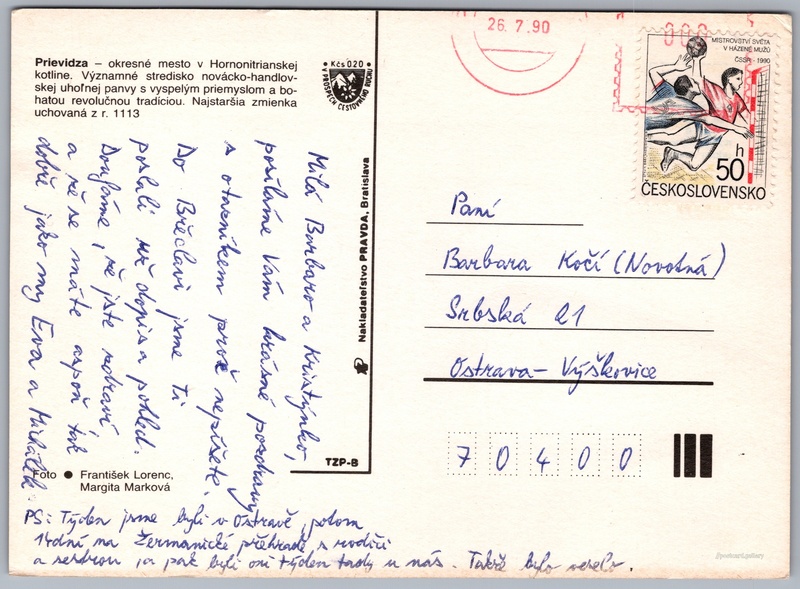 Prievidza – okresné mesto v Hornonitrianskej
kotline. Významné stredisko novácko-handlov-
skej uhoľnej panvy s vyspelým priemyslom a bo-
hatou revolučnou tradíciou. Najstaršia zmienka
uchovaná z r. 1113
Kčs 020
V PROSPECH CESTOVNÉHO RUCHU
26.7.90
MISTROVSTVÍ SVĚTA
V HÁZENÉ MUŽŮ
ČSSR - 1990
50 h
ČESKOSLOVENSKO
Milá Barbaro a Kristýnko,
posíláme Vám krásné pozdravy
s otazníkem proč nepíšete.
Do Břeclavi jsme Ti
poslali už dopis a pohled.
Doufáme, že jste zdraví
a že se máte aspoň tak
dobře jako my Eva a Michálek.
PS: Týden jsme byli v Ostravě, potom
14dní na Žermanické přehradě s rodiči
a sestrou a pak byli oni týden tady u nás. Takže bylo veselo.
Nakladateľstvo PRAVDA, Bratislava
TZP-B
Foto ● František Lorenc,
Margita Marková
Paní
Barbara Kočí (Novotná)
Srbská 21
Ostrava-Výškovice
70400